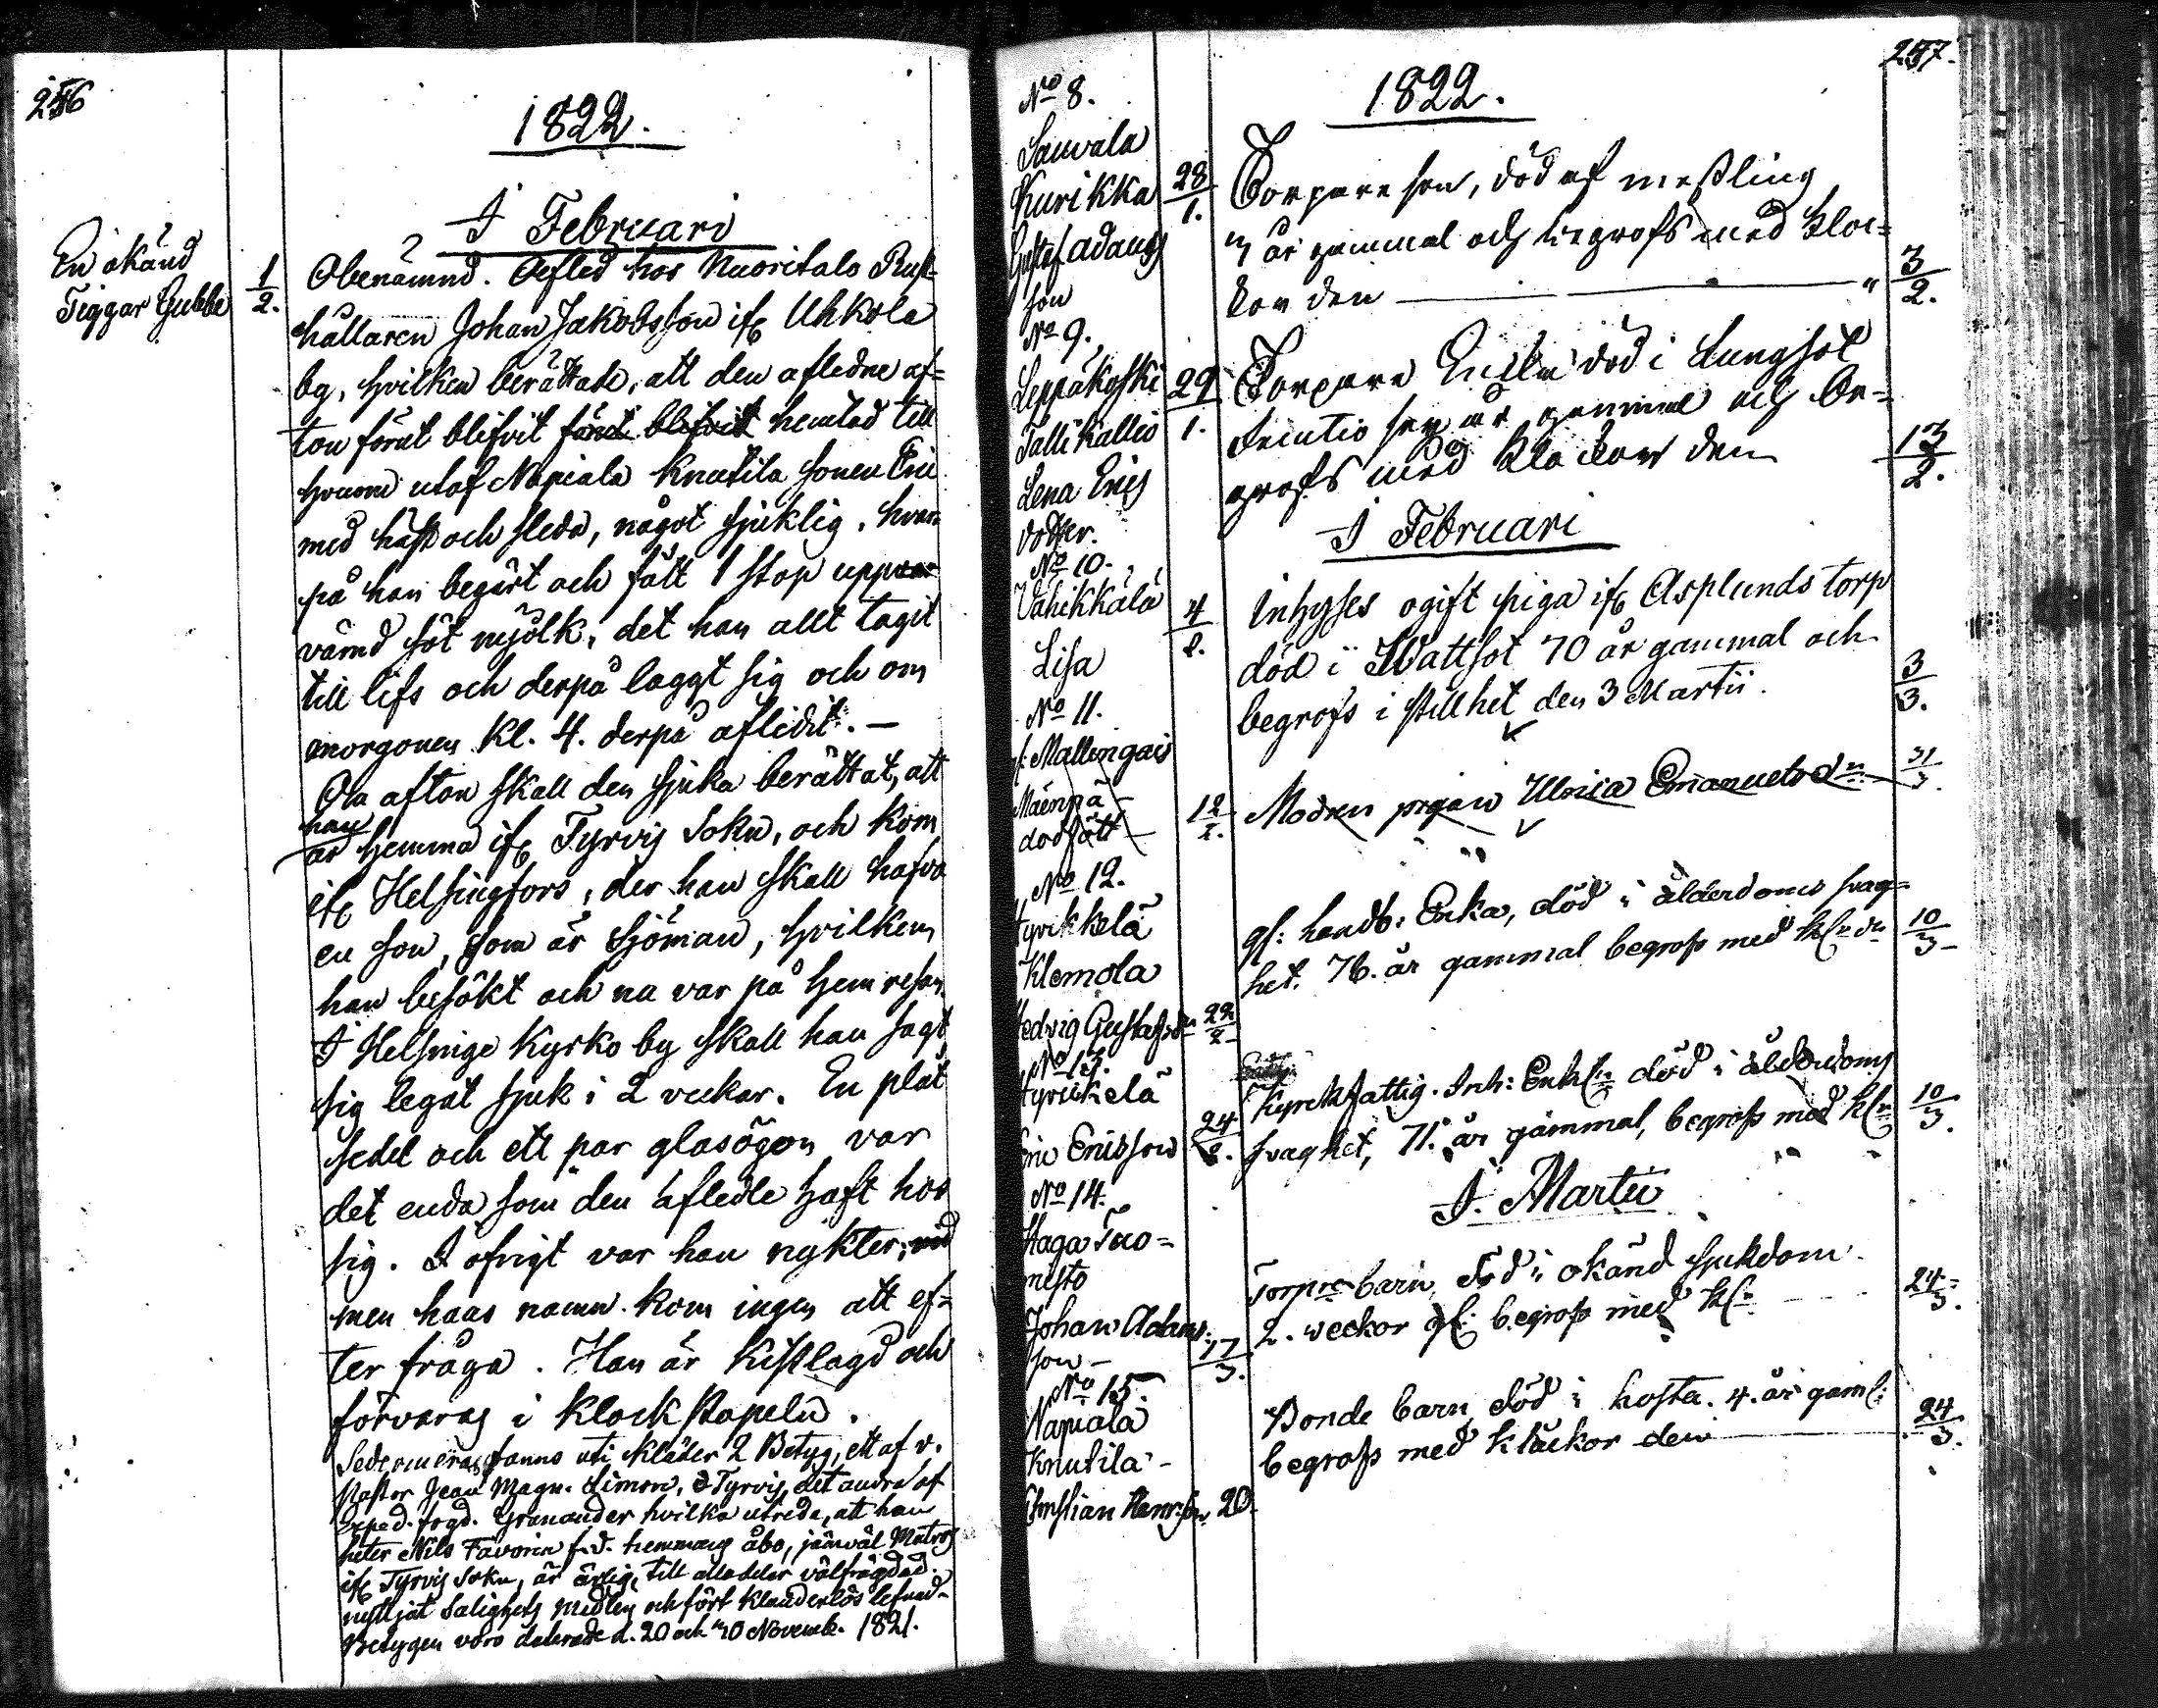 256
1822.
I Februari
En okänd
Tiggar Gubbe
1/2.
Obenämnd. Afled hos Nuoritalo Rust-
hållaren Johan Jakobsson ifr Uhkola
by, hvilken berättade, att den afledne af-
ton förut blifvit förut blifvit hemtad till
honom utaf Napiala Knutila sonen Eric
med häst och släda, något sjuklig, hvar-
på han begärt och fått 1 stop uppvar
värmd söt mjölk, det han allt tagit
till lifs och derpå laggt sig och om
morgonen Kl. 4. derpå aflidit. —
Om afton skall den sjuka berättat, att
han
är hemma ifr Tyrvis Sokn, och kom
ifr Helsingfors, der han skall hafva
en son, som är Sjöman, hvilken
han besökt och nu var på hemresan.
I Helsinge Kyrko by skall han sagt
sig legat sjuk i 2 veckor. En plåt
sedel och ett par glasögon var
det enda som den afledle haft hos
sig. I öfrigt var han nykter,
men hans namn kom ingen att ef-
ter fråga. Han är Kistlagd och
förvaras i Klockstapeln.
Sedermera fanns uti kläder 2 Betyg, ett af v.
Pastor Jean Magn. Limon, i Tyrvis, det andra af
Exped. fogd. Granander hvilka utreda, att han
heter Nils Favorin f.d. hemmans åbo, jämväl Matros
ifr Tyrvis Sokn, är ärlig, till alla delar välfrägdad.
nyttjat Salighets medlen och fört klanderlös lefnad-
Betygen voro daterade d. 20 och 30 Novemb. 1821.
257.
1822.
No 8.
Sauvala
Kurikka
Gustaf Adams
son
28/1.
Torpare son, död af messling
år gammal och begrofs med kloc-
kor den — " 3/2.
No 9.
Leppäkoski
Tallikallio
Lena Erics
dotter.
29/1.
Torpare Enka död i Lungsot
år gammal och be-
grofs med klockor den 13/2.
I Februari
No 10.
Vähikkälä
Lisa
4/2.
Inhyses ogift piga ifr Asplunds torp
död i Wattsot 70 år gammal och
begrofs i stillhet den 3 Martii. 3/3.
No 11.
Mallingais
Mäenpä
dödfödt
12/2.
Modren pigan Ulrica Emanuelsdr 31/3.
No 12.
Hyvikkelä
Klemola
Hedvig Gustafsdr 22/2
gl: bonde: Enka, död i ålderdoms svag-
het. 76. år gammal begrofs med klr dn 10/3
No 13.
Hyvikkelä
Eric Ericsson 24/2.
Kyrckfattig. Inh: Enkln död i ålderdoms
svaghet, 71. år gammal, begrofs med klr 10/3.
I Martii
No 14.
Haga Tuo-
misto
Johan Adams-
son — 17/3.
Torpre barn, död i okänd sjukdom.
2. veckor gl: begrofs med klr 24/3.
No 15.
Napiala
Knutila -
Christian Henr:son 20.
Bonde barn, död i hosta. 4. år gaml:
begrofs med klåckor den — 24/3.